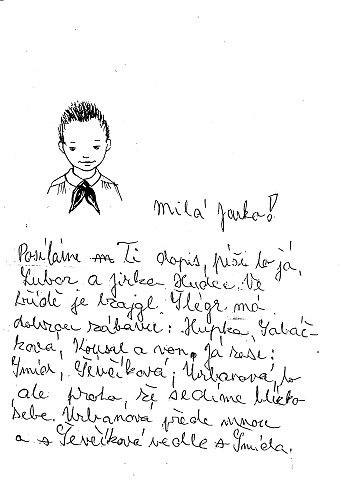 Milá Jarko!
Posíláme Ti dopis, píši to já,
Lubor a Jirka Hudec. Ve
třídě je bzajgl. Šlégr má
dobrou zábavu: Hupka, Sabáč-
ková, Kousal a von. Já zase:
Šmíd, Ševčíková, Urbanová, to
ale proto, že sedíme blízko
sebe. Urbanová přede mnou
a s Ševčíková vedle s Šmída.